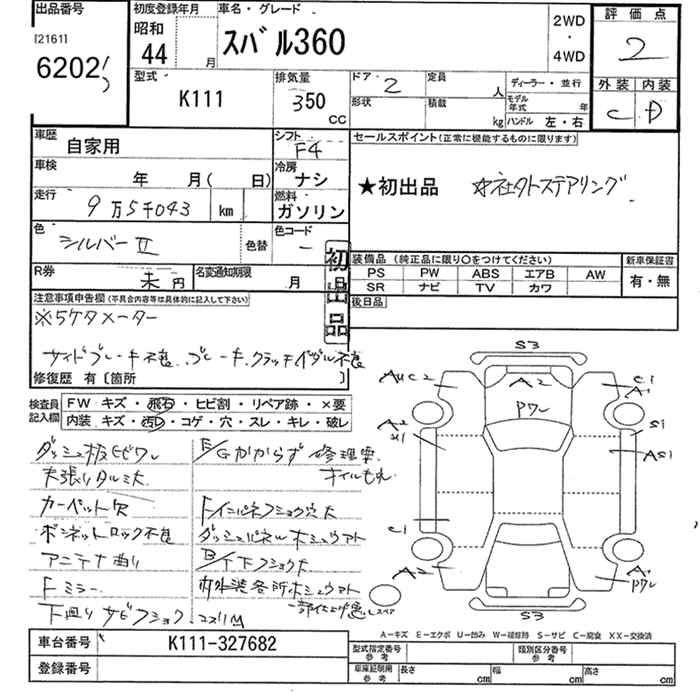 出品番号
[2161]
6202
初度登録年月
昭和
44 月
車名・グレード
スバル360
2WD
・
4WD
評価点
2
外装 内装
C D
型式
K111
排気量
350
cc
ドア 2
定員 人
形状
積載 kg
ディーラー・並行
モデル年式 年
ハンドル 左・右
車歴
自家用
シフト
F4
車検
年 月( 日)
冷房
ナシ
走行
9万5千043 km
燃料
ガソリン
色
シルバーII
色替
色コード
R券
未 円
名変通知期限
月
初出品
セールスポイント(正常に機能するものに限ります)
★初出品
装備品 (純正品に限り○をつけてください)
PS PW ABS エアB AW
SR ナビ TV カワ
新車保証書
有・無
後日品
注意事項申告欄(不具合内容等は具体的に記入して下さい)
※5ケタメーター
サイドブレーキ不良 ブレーキ、クラッチペダル不良
修復歴 有〔箇所 〕
検査員
記入欄
FW キズ・飛石・ヒビ割・リペア跡・×要
内装 キズ・汚れ・コゲ・穴・スレ・キレ・破レ
ダッシュ板ヒビワレ
天張りタルミ大
カーペット欠
ボンネットロック不良
アンテナ曲り
Fミラー
下廻りサビフショク・コスリM
E/Gかからず 修理要
オイルもれ
Fインパネフショク穴大
ダッシュパネルホシュウアト
B/T下フショク大
内外装各所ホシュウアト
一部仕上げ悪い
スペア
S3
AUC2
A2
PWレ
C1
A1
A2
X1
S1
AS1
C1
A2
A1
PWレ
S3
A－キズ E－エクボ U－凹み W－補修跡 S－サビ C－腐食 XX－交換済
車台番号
K111-327682
登録番号
型式指定番号
参考
類別区分番号
参考
車庫証明用
参考
長さ cm
幅 cm
高さ cm